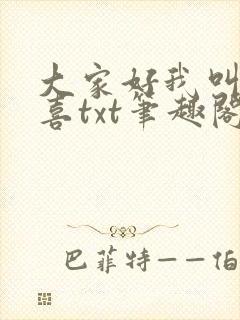 大家好我叫
喜txt笔趣阁
巴菲特——伯